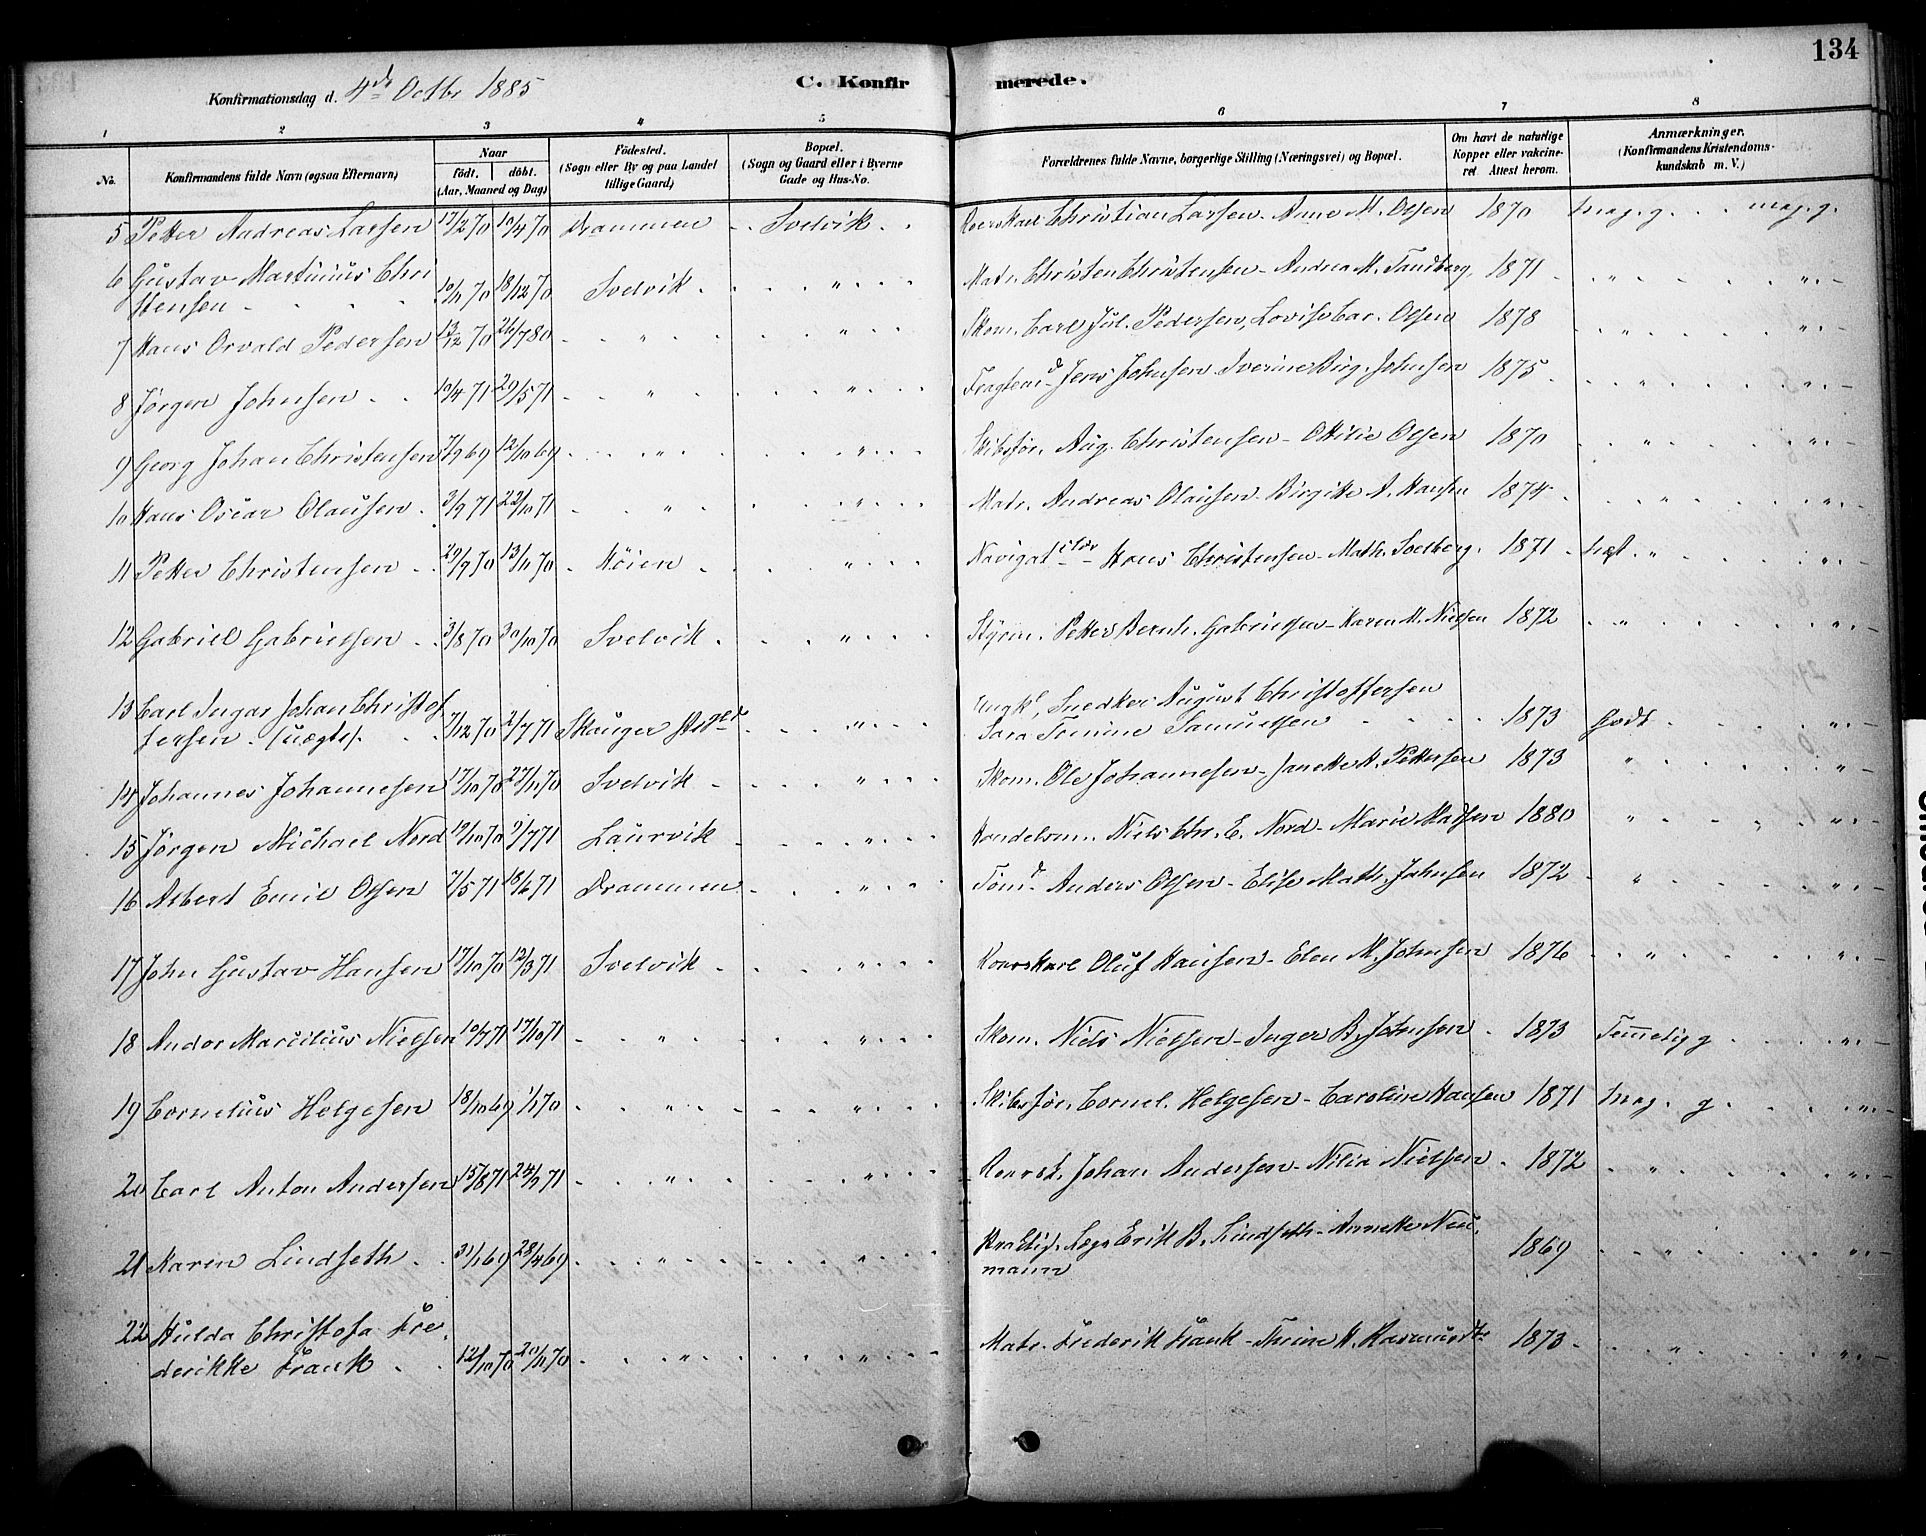 134
Konfirmationsdag d. 4de Octbr 1885
C. Konfirmerede.
1 2 3 4 5 6 7 8
No. Konfirmandens fulde Navn (ogsaa Efternavn) Naar født. døbt. (Aar, Maaned og Dag) Fødested. (Sogn eller By og paa Landet tillige Gaard) Bopæl. (Sogn og Gaard eller i Byerne Gade og Hus-No. Forældrenes fulde Navne, borgerlige Stilling (Næringsvei) og Bopæl. Om havt de naturlige Kopper eller vakcineret Attest herom. Anmærkninger. (Konfirmandens Kristendomskundskab m. V.)
5 Petter Andreas Larsen 17/2 70 10/4 70 Drammen Svelvik Christian Larsen - Anne M. Olsen 1870 meg. g. meg. g.
6 Gustav Martinius Chri
stensen 10/11 70 18/12 70 Svelvik " Matr. Christen Christensen - Andrea M. Tandberg 1871 " "
7 Hans Orvald Pedersen 13/12 70 26/7 80 " " Skom. Carl Jul. Pedersen, Lovise Car. Olsen 1878 " "
8 Jørgen Johnsen 10/4 71 29/5 71 " " Jens Johnsen Iverine Birg. Johnsen 1875 " "
9 Georg Johan Christensen 7/9 69 12/10 69 " " Skibsfør. Aug. Christensen - Ottilie Olsen 1870 " "
10 Hans Oscar Olausen 3/9 71 22/10 71 " " Matr. Andreas Olausen. Birgitte A. Hansen 1874 " "
11 Petter Christensen 29/9 70 13/11 70 Høien " Hans Christensen - Math. Soelberg 1871 "
12 Gabriel Gabrielsen 3/8 70 30/10 70 Svelvik " Styrm. Petter Bernh. Gabrielsen - Karen M. Nielsen 1872 " "
13 Carl Ingar Johan Christof
fersen. (uægte) 7/12 70 2/7 71 Skauger " Ungk. Snedker August Christoffersen
Sara Trinine Samuelsen 1873 Godt "
14 Johannes Johannesen 17/10 70 27/11 70 Svelvik " Skom. Ole Johannesen - Janette H. Pettersen 1873 " "
15 Jørgen Michael Nord 19/10 70 9/7 71 Laurvik " Handelsm. Niels Chr. E. Nord - Marie Madsen 1880 " "
16 Albert Emil Olsen 7/5 71 18/6 71 Drammen " Anders Olsen - Elise Math. Johnsen 1872 " "
17 John Gustav Hansen 17/10 70 12/3 71 Svelvik " Oluf Hansen - Elen M. Johnsen 1876 " "
18 Andor Marcilius Nielsen 10/7 71 17/10 71 " " Skom. Niels Nielsen - Inger B. Johnsen 1873 Temmelig g "
19 Cornelius Helgesen 18/10 69 1/1 70 " " Skibsfør. Cornel. Helgesen - Caroline Hansen 1871 meg. g. "
20 Carl Anton Andersen 15/8 71 24/9 71 " " Johan Andersen - Nilia Nielsen 1872 " "
21 Karen Lindseth 31/1 69 28/4 69 " " Erik B. Lindseth - Annette Neu
mann 1869 " "
22 Hulda Christofa Fre
derikke Frank 12/10 70 20/11 70 " " Matr. Frederik Frank - Thrine H. 1873 " "